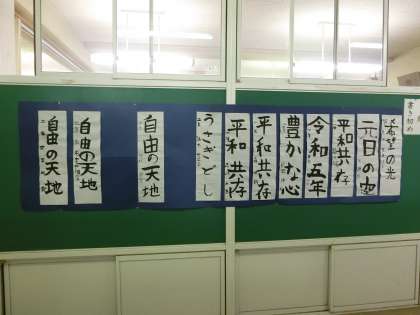 書き初め
希望の光
元日の空
平和共存
令和五年
豊かな心
平和共存
平和共存
うさぎどし
自由の天地
自由の天地
自由の天地